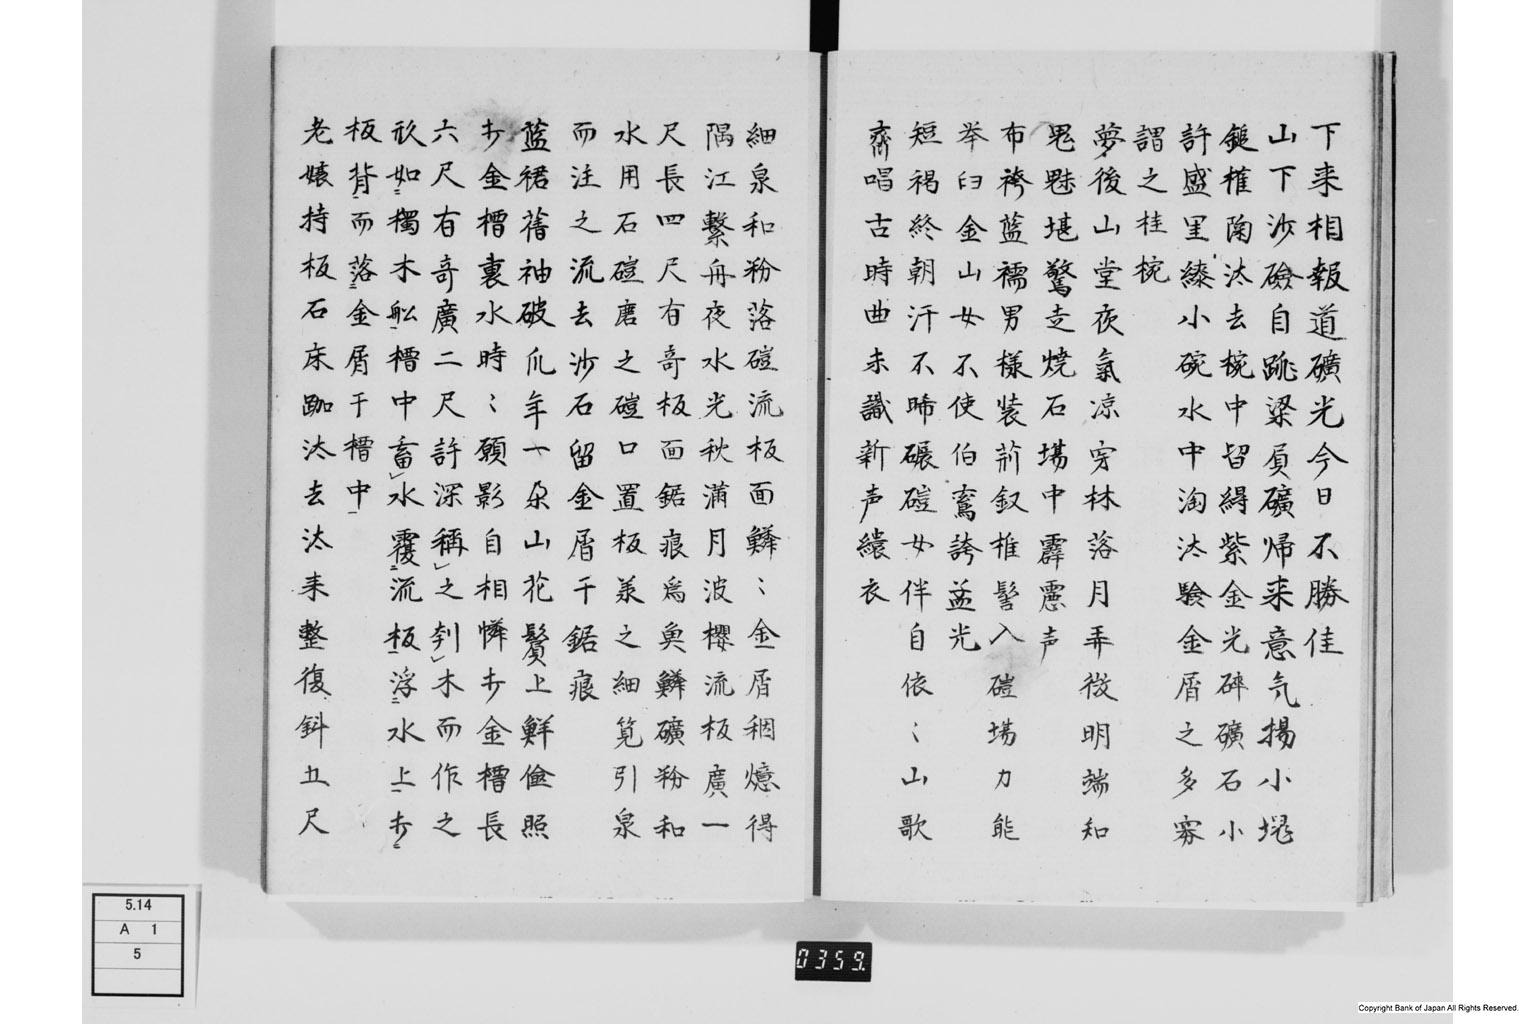 下来相報道礦光今日不勝佳
山下沙礆自跳梁負礦帰来意気揚小堤
鎚椎陶汰去椀中留得紫金光碎礦石小
許盛黒縩小碗水中淘汰験金屑之多寡
謂之桂椀
夢後山堂夜氣凉穿林落月弄微明端知
鬼魅堪驚走焼石場中霹靂声
布袴藍襦男様装荊釵椎髻入磑場力能
挙臼金山女不使伯鸞誇孟光
短褐終朝汗不晞碾磑女伴自依〻山歌
齊唱古時曲未識新声繞衣
細泉和粉落磑流板面鱗〻金屑稠憶得
隅江繋舟夜水光秋満月波櫻流板廣一
尺長四尺有奇板面鋸痕為魚鱗礦粉和
水用石磑磨之磑口置板羕之細筧引泉
而注之流去沙石留金屑干鋸痕
藍裙蒨袖破爪年一朶山花鬢上鮮倹照
歩金槽裏水時〻願影自相憐歩金槽長
六尺有奇廣二尺許深稱之刳木而作之
状如獨木舩槽中畜水覆流板浮水上歩
板背而落金屑于槽中
老婊持板石床跏汰去汰来整復斜五尺
5.14
A 1
5
0359.
Copyright Bank of Japan All Rights Reserved.